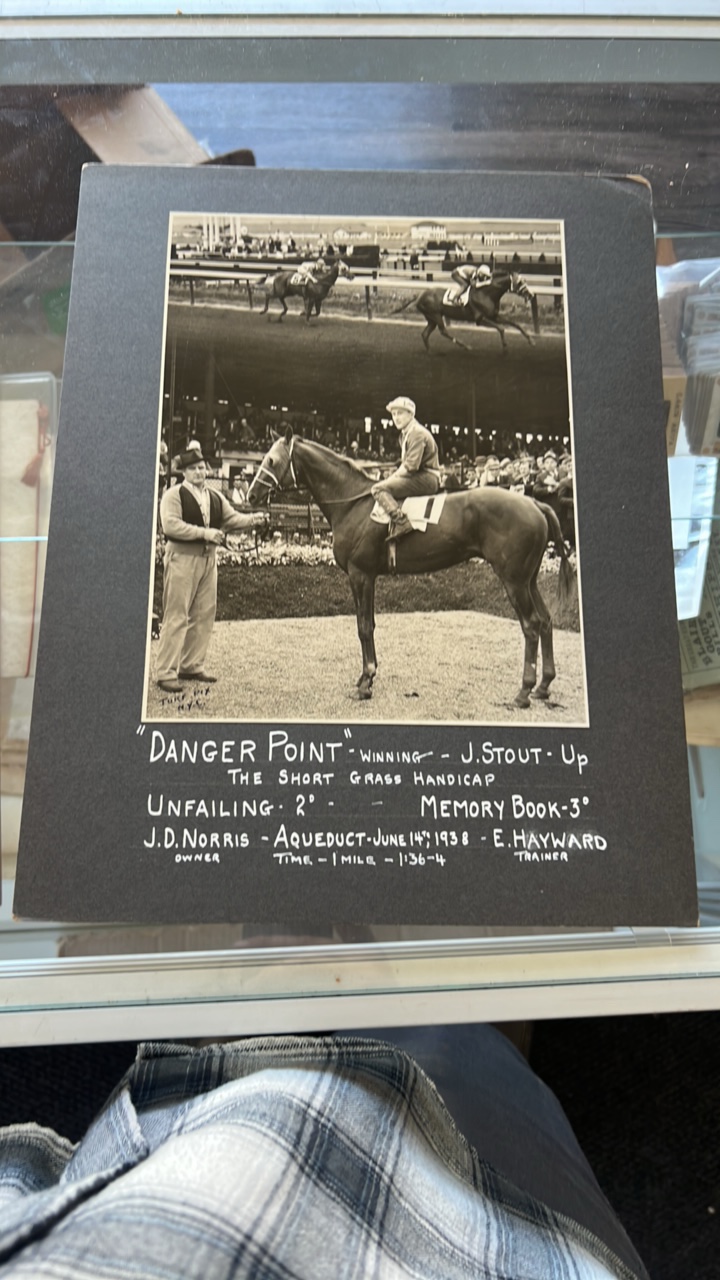 TURF PIX
N.Y.C.
"DANGER POINT" - WINNING - J. STOUT - UP
THE SHORT GRASS HANDICAP
UNFAILING - 2° - - MEMORY BOOK - 3°
J.D. NORRIS - AQUEDUCT - JUNE 14TH, 1938 - E. HAYWARD
OWNER TIME - 1 MILE - 1:36-4 TRAINER